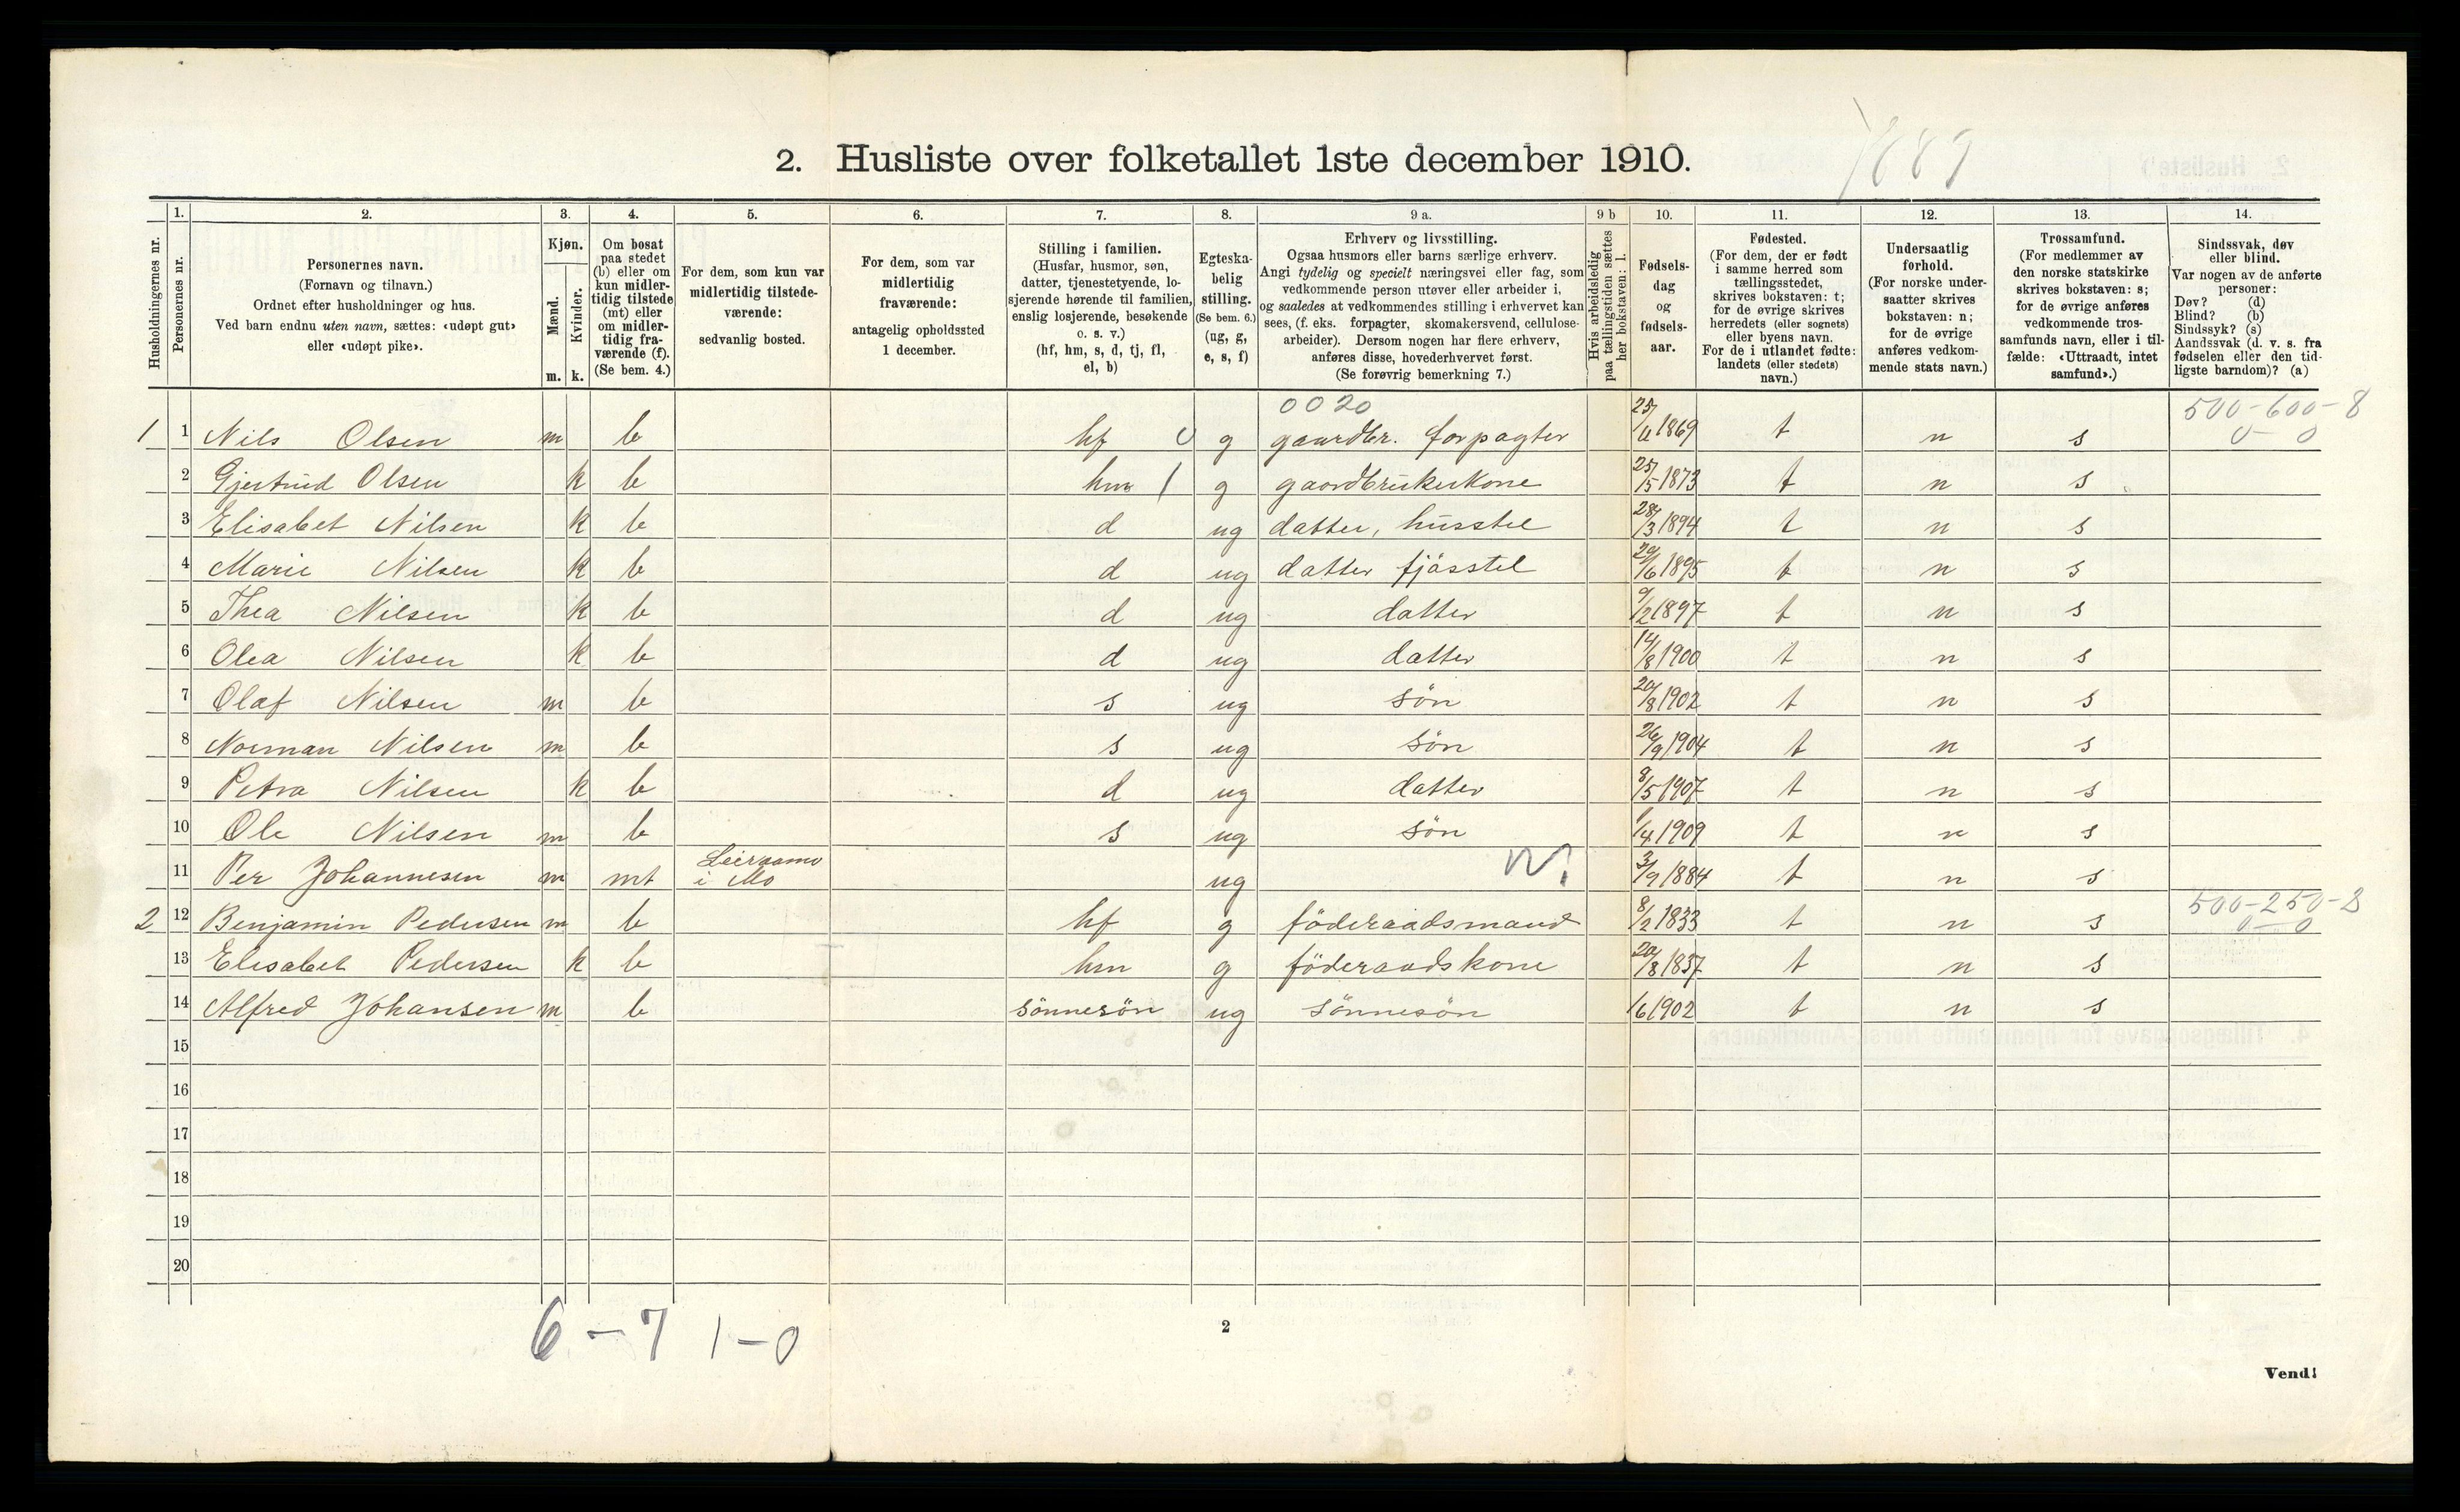 2. Husliste over folketallet 1ste december 1910.
Husholdningernes nr.
1.
Personernes nr.
2.
Personernes navn.
(Fornavn og tilnavn.)
Ordnet efter husholdninger og hus.
Ved barn endnu uten navn, sættes: «udøpt gut»
eller «udøpt pike».
3.
Kjøn.
Mænd.
Kvinder.
m. k.
4.
Om bosat
paa stedet
(b) eller om
kun midler-
tidig tilstede
(mt) eller
om midler-
tidig fra-
værende (f).
(Se bem. 4.)
5.
For dem, som kun var
midlertidig tilstede-
værende:
sedvanlig bosted.
6.
For dem, som var
midlertidig
fraværende:
antagelig opholdssted
1 december.
7.
Stilling i familien.
(Husfar, husmor, søn,
datter, tjenestetyende, lo-
sjerende hørende til familien,
enslig losjerende, besøkende
o. s. v.)
(hf, hm, s, d, tj, fl,
el, b)
8.
Egteska-
belig
stilling.
(Se bem. 6.)
(ug, g,
e, s, f)
9 a.
Erhverv og livsstilling.
Ogsaa husmors eller barns særlige erhverv.
Angi tydelig og specielt næringsvei eller fag, som
vedkommende person utøver eller arbeider i,
og saaledes at vedkommendes stilling i erhvervet kan
sees, (f. eks. forpagter, skomakersvend, cellulose-
arbeider). Dersom nogen har flere erhverv,
anføres disse, hovederhvervet først.
(Se forøvrig bemerkning 7.)
9 b
Hvis arbeidsledig
paa tællingstiden sættes
her bokstaven: l.
10.
Fødsels-
dag
og
fødsels-
aar.
11.
Fødested.
(For dem, der er født
i samme herred som
tællingsstedet,
skrives bokstaven: t;
for de øvrige skrives
herredets (eller sognets)
eller byens navn.
For de i utlandet fødte:
landets (eller stedets)
navn.)
12.
Undersaatlig
forhold.
(For norske under-
saatter skrives
bokstaven: n;
for de øvrige
anføres vedkom-
mende stats navn.)
13.
Trossamfund.
(For medlemmer av
den norske statskirke
skrives bokstaven: s;
for de øvrige anføres
vedkommende tros-
samfunds navn, eller i til-
fælde: «Uttraadt, intet
samfund».)
14.
Sindssvak, døv
eller blind.
Var nogen av de anførte
personer:
Døv? (d)
Blind? (b)
Sindssyk? (s)
Aandssvak (d. v. s. fra
fødselen eller den tid-
ligste barndom)? (a)
0020 500-600-8
1 1 Nils Olsen m b hf 0 g gaardbr. forpagter 1869 t n s 0-0
2 Gjertrud Olsen k b hm 1 g gaardbrukerkone 25/5 1873 t n s
3 Elisabet Nilsen k b d ug datter, husstel 28/3 1894 t n s
4 Marie Nilsen k b d ug datter fjösstel 29/6 1895 t n s
5 Thea Nilsen k b d ug datter 9/2 1897 t n s
6 Olea Nilsen k b d ug datter 14/8 1900 t n s
7 Olaf Nilsen m b s ug sön 20/8 1902 t n s
8 Norman Nilsen m b s ug sön 26/9 1904 t n s
9 Petra Nilsen k b d ug datter 8/5 1907 t n s
10 Ole Nilsen m b s ug sön 1/4 1909 t n s
11 Per Johannesen m mt i Mo ug 3/9 1884 t n s
500-250-
2 12 Benjamin Pedersen m b hf g föderaadsmand 8/2 1833 t n s 0-0
13 Elisabet Pedersen k b hm g föderaadskone 20/8 1837 t n s
14 Alfred Johansen m b sönnesön ug sönnesön 1/6 1902 t n s
15
16
17
18
19
20
6 - 7 1 - 0
2
Vend!